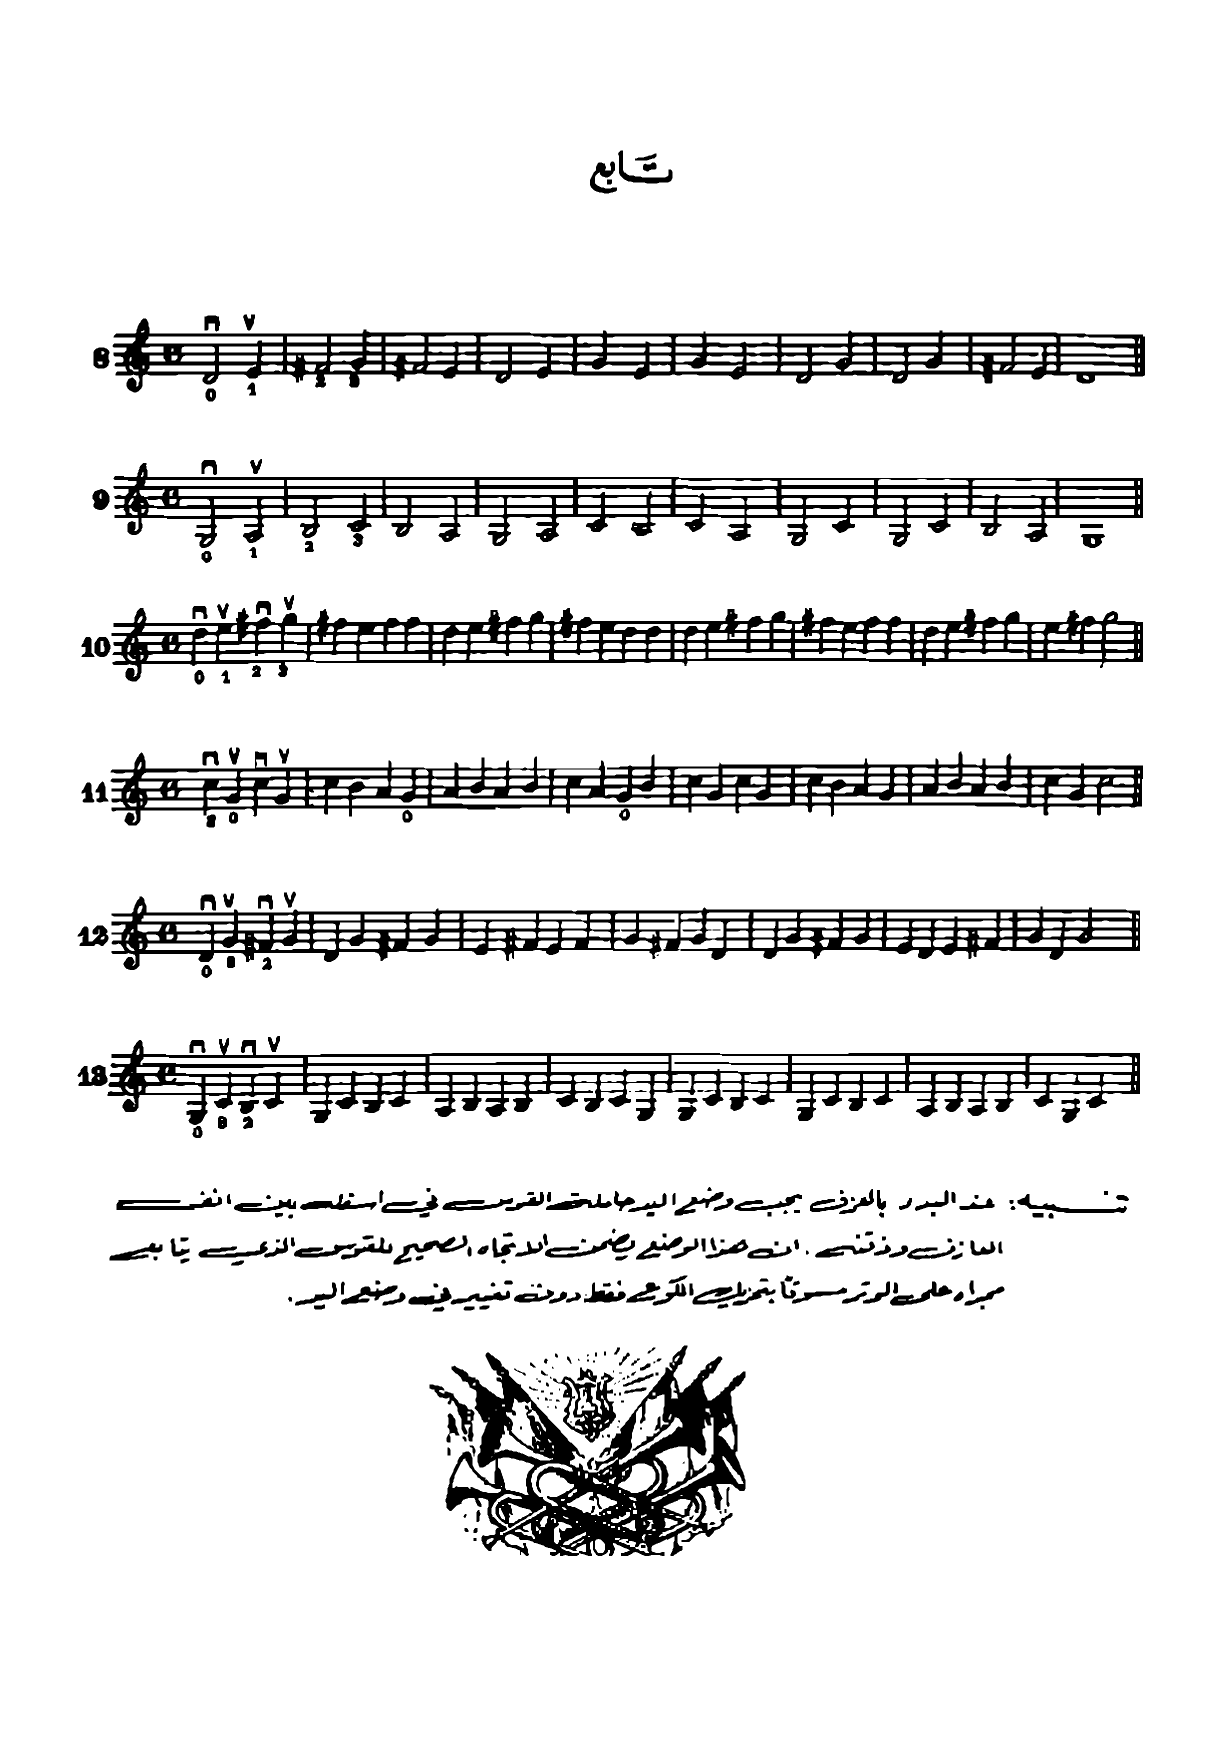 تابع
8
0 1 2 3
9
0 1 2 3
10
0 1 2 3
11
3 0 0 0
12
0 3 2
13
0 3 2
تنبيه: عند البدء بالعزف يجب وضع اليد حاملة القوس في اسفل بين انف
العازف وذقنه. ان هذا الوضع يضمن الاتجاه الصحيح للقوس الذي يتابع
مجراه على الوتر مسوقاً بتحريك الكوع فقط دون تغيير في وضع اليد.